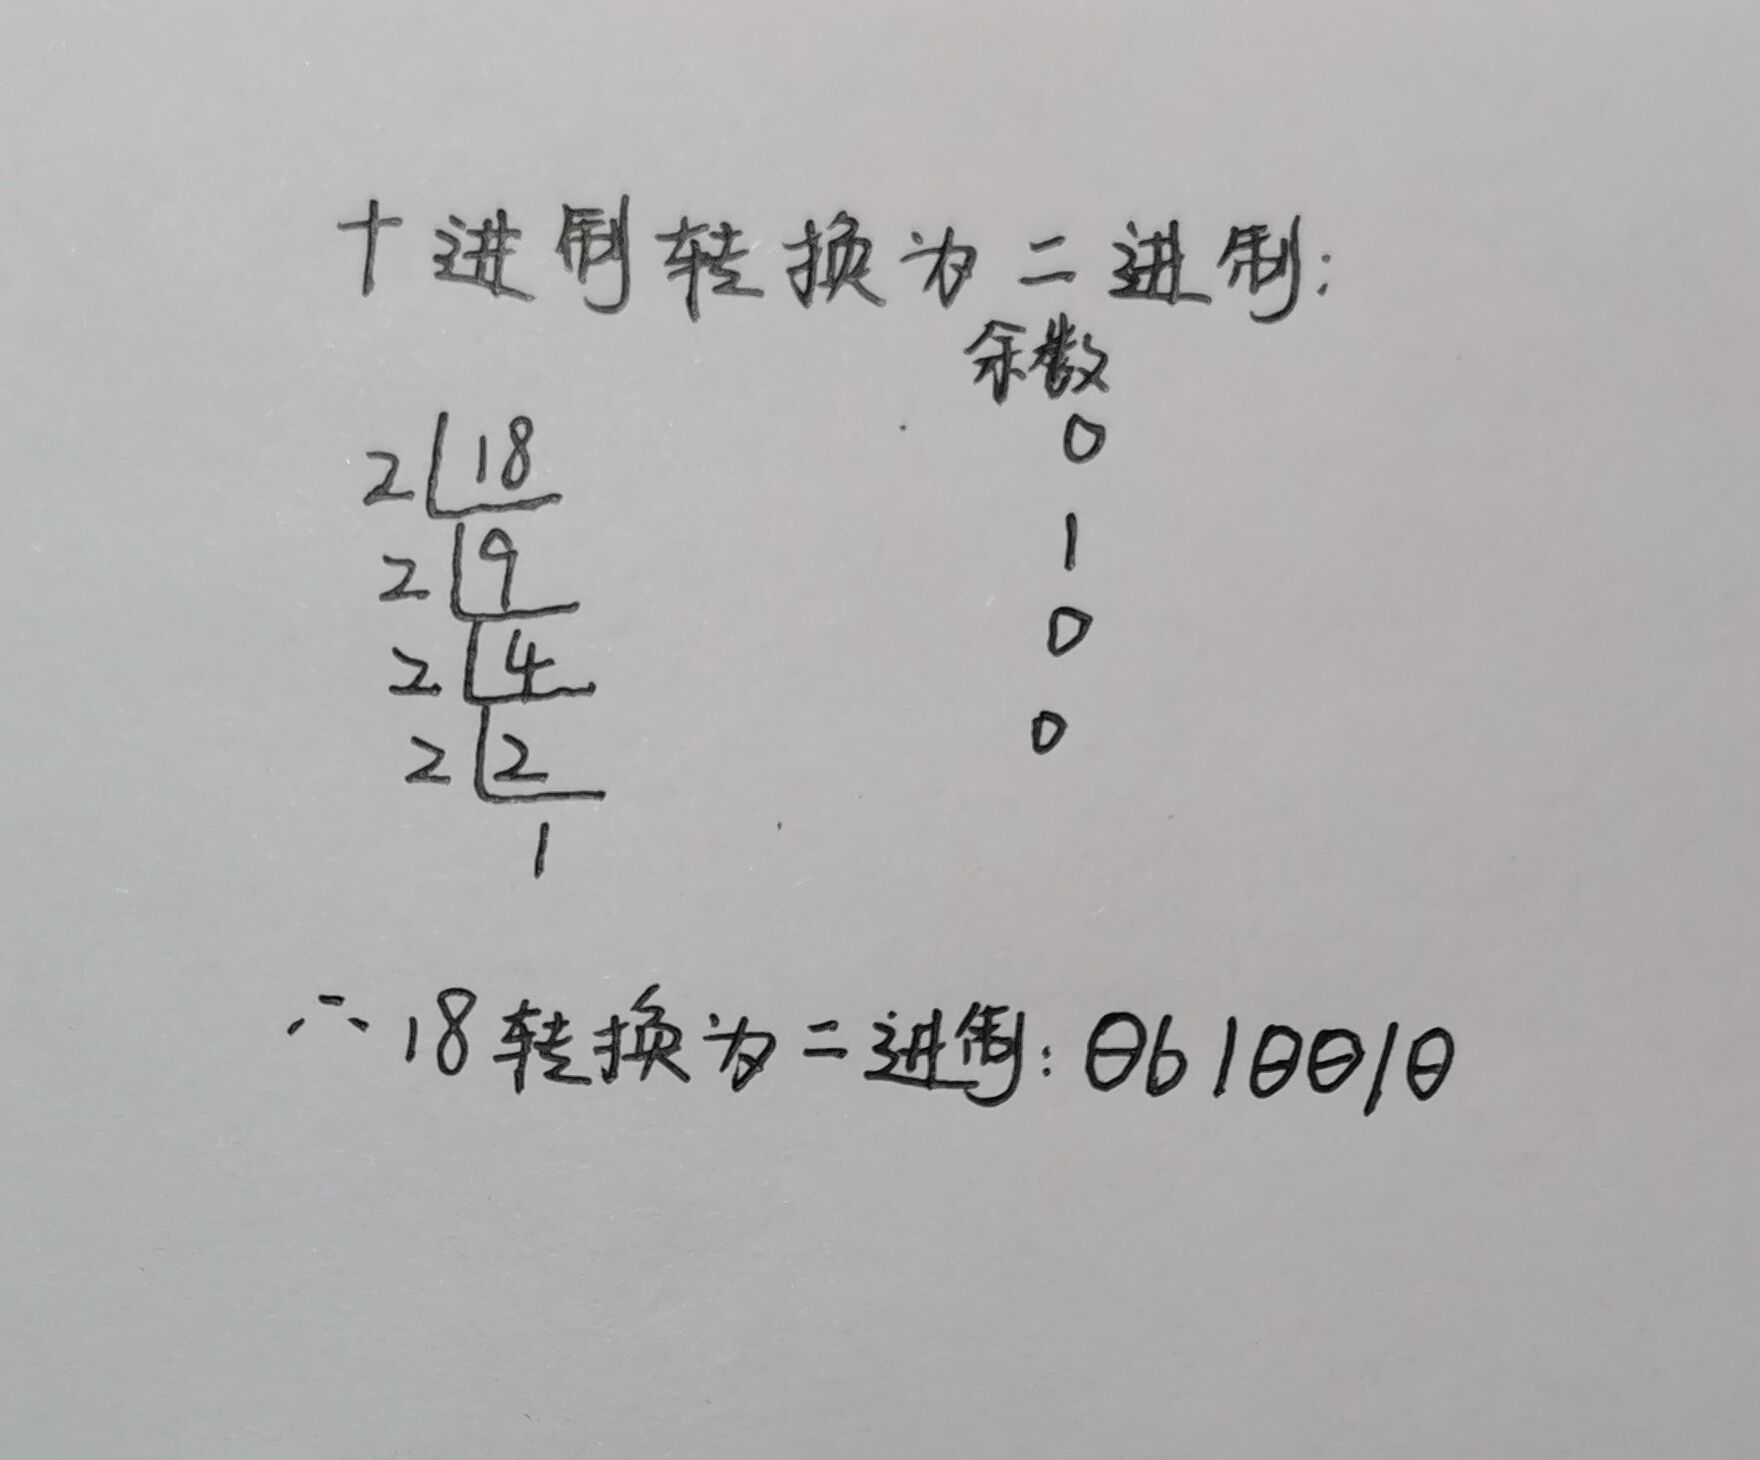 十进制转换为二进制:
余数
2 18 0
2 9 1
2 4 0
2 2 0
1
∴ 18转换为二进制: 0b10010